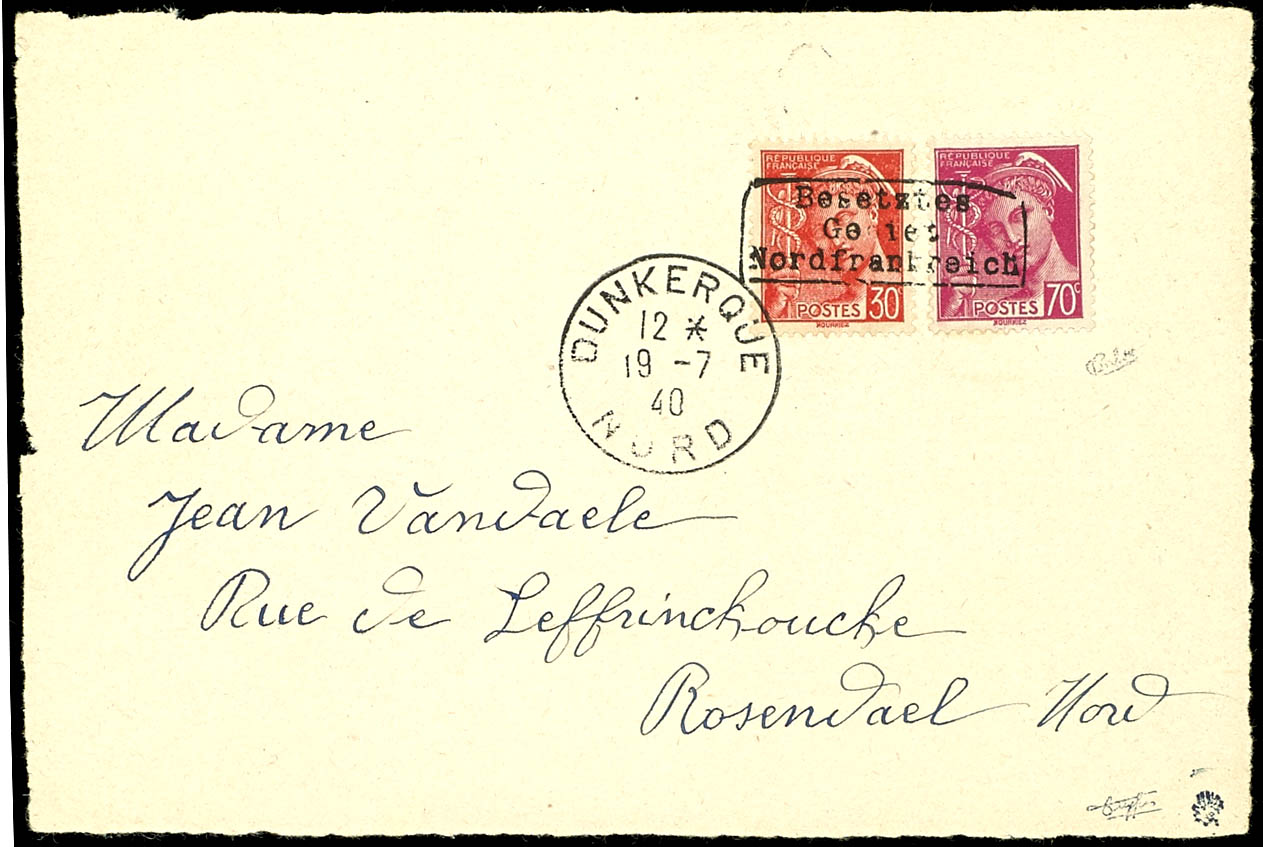 RÉPUBLIQUE
FRANÇAISE
POSTES 30
MOURRIEZ
RÉPUBLIQUE
FRANÇAISE
POSTES 70c
MOURRIEZ
Besetztes
Gebiet
Nordfrankreich
DUNKERQUE
12 *
19 -7
40
NORD
Madame
Jean Vandaele
Rue de Leffrinckoucke
Rosendael Nord